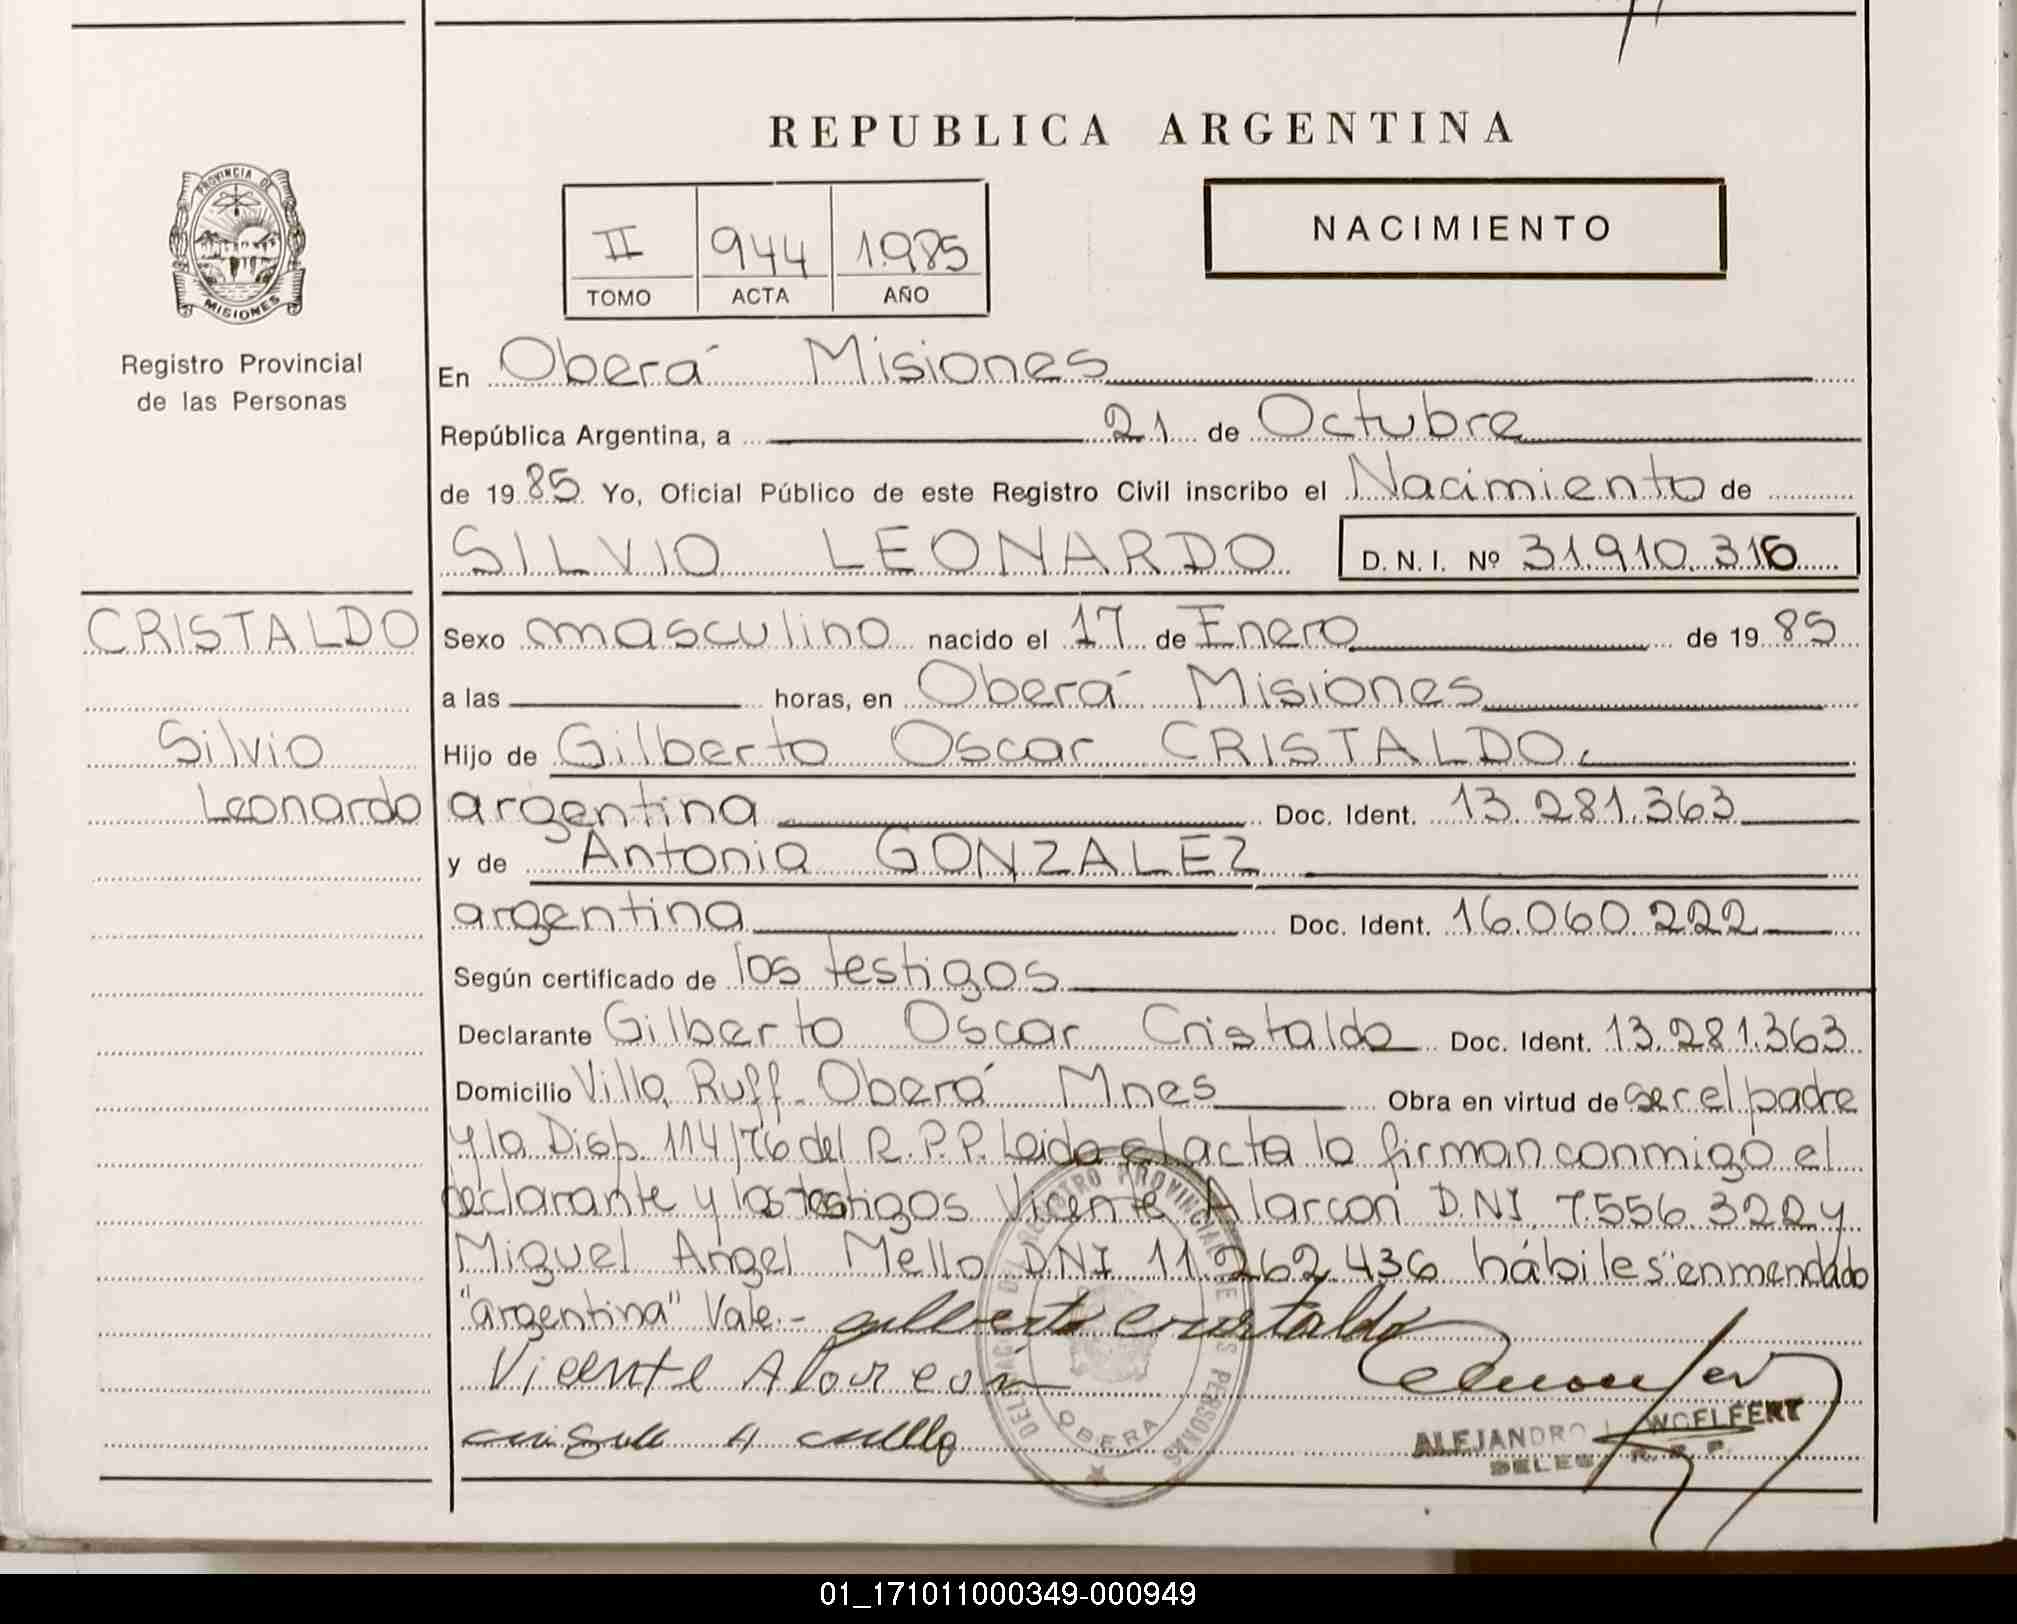 REPUBLICA ARGENTINA
PROVINCIA DE
MISIONES
Registro Provincial
de las Personas
NACIMIENTO
II 944 1.985
TOMO ACTA AÑO
En Oberá Misiones
República Argentina, a 21 de Octubre
de 1985 Yo, Oficial Público de este Registro Civil inscribo el Nacimiento de
SILVIO LEONARDO D. N. I. Nº 31.910.316
CRISTALDO
Silvio
Leonardo
Sexo masculino nacido el 17 de Enero de 1985
a las horas, en Oberá Misiones
Hijo de Gilberto Oscar CRISTALDO
argentina Doc. Ident. 13.281.363
y de Antonia GONZALEZ
argentina Doc. Ident. 16.060.222
Según certificado de los testigos
Declarante Gilberto Oscar Cristaldo Doc. Ident. 13.281.363
Domicilio Villa Ruff - Oberá Mnes Obra en virtud de ser el padre
y la Disp. 114/76 del R.P.P. Leida el acta la firman conmigo el
declarante y los testigos Vicente Alarcón D.N.I. 7.556.322 y
Miguel Angel Mello DNI 11.262.436 hábiles "enmendado
"argentina" Vale.- gilberto Cristaldo
Vicente Alarcon
Miguel A Mello
REGISTRO PROVINCIAL DE LAS PERSONAS
OBERA
ALEJANDRO WOELFERT
01_171011000349-000949